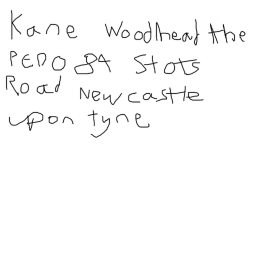 Kane Woodhead the
PEDO 84 Stots
Road Newcastle
upon tyne